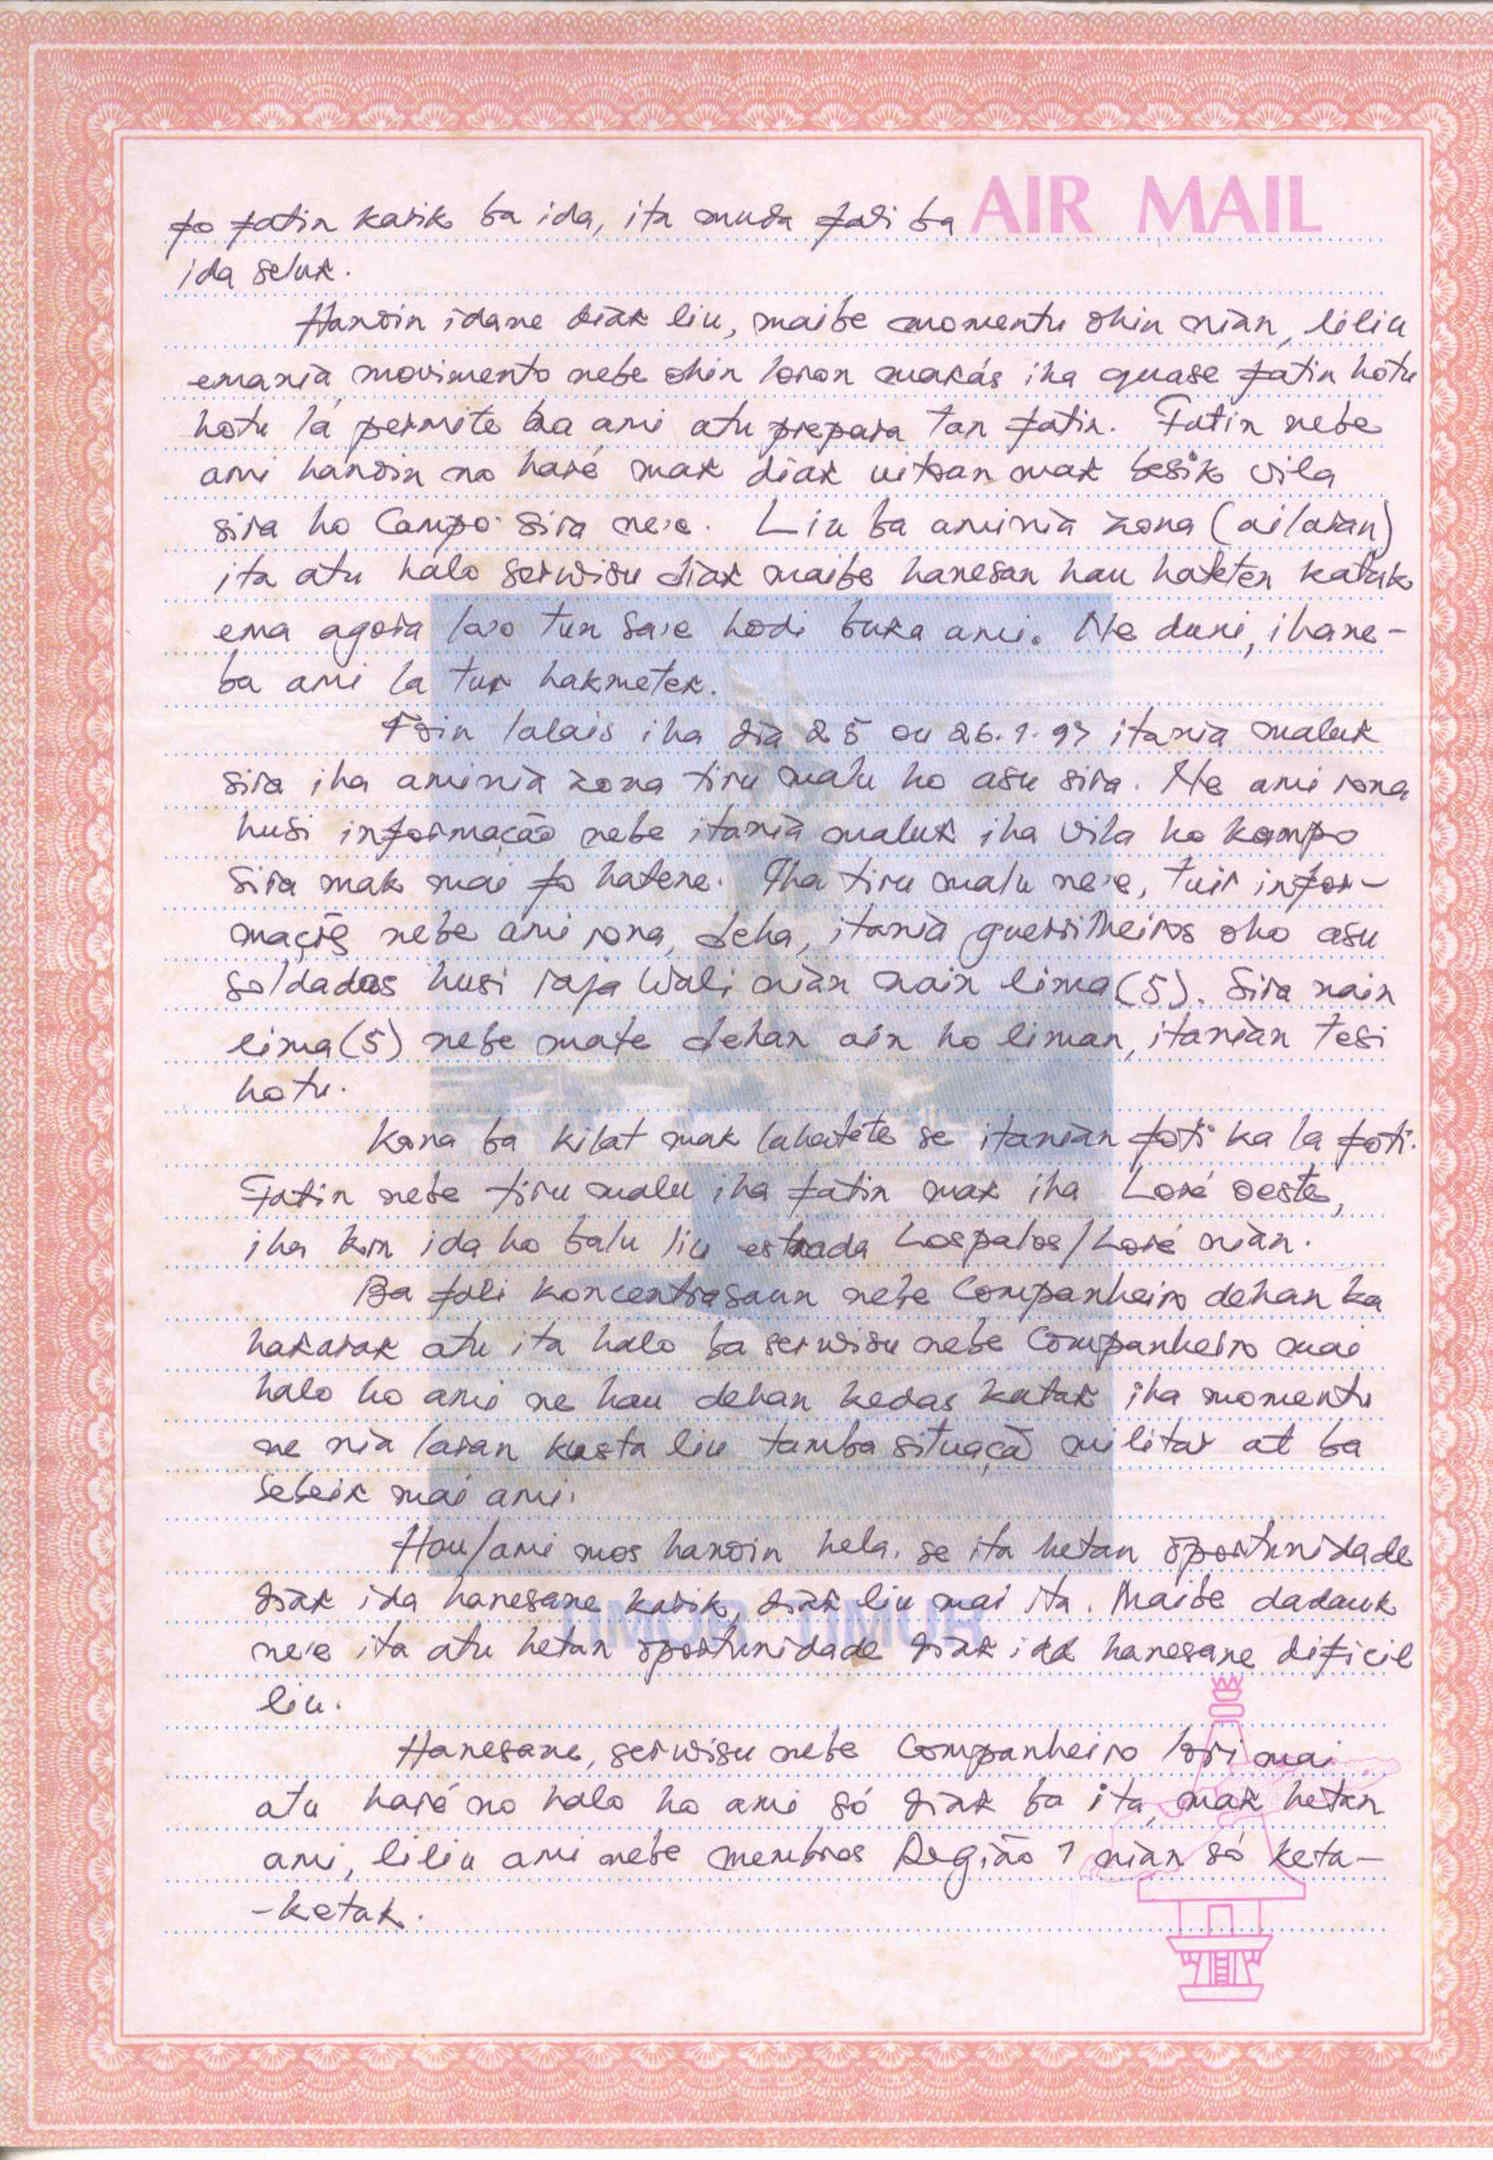 fo fatin karik ba ida, ita muda fali ba
AIR MAIL
ida seluk.
Hanoin idane diak liu, maibe momentu ohin nian, liliu
emania movimento nebe ohin loron makás iha quase fatin hotu
hotu la permite ba ami atu prepara tan fatin. Fatin nebe
ami hanoin no haré mak diak uitoan mak besik vila
sira ho Campo sira ne'e. Liu ba aminia zona (ailaran)
ita atu halo serwisu diak maibe hanesan hau hateten katak
ema agora lao tun sa'e hodi buka ami. Ne duni, ihane-
ba ami la tur hakmetek.
Foin lalais iha dia 25 ou 26.1.97 itania maluk
sira iha aminia zona tiru malu ho asu sira. Ne ami rona
husi informação nebe itania maluk iha vila ho kampo
sira mak mai fo hatene. Iha tiru malu ne'e, tuir infor-
mações nebe ami rona, deha, itania guerrilheiros oho asu
soldadus husi raja Wali nian nain lima (5). Sira nain
lima (5) nebe mate dehan ain ho liman, itanian tesi
hotu.
Kona ba kilat mak lahatete se itanian foti ka la foti.
Fatin nebe tiru malu iha fatin mak iha Loré oeste,
iha km ida ho balu liu estrada Lospalos/Loré nian.
Ba fali koncentrasaun nebe Companheiro dehan ka
hakarak atu ita halo ba serwisu nebe Companheiro mai
halo ho ami ne hau dehan kedas katak iha momentu
ne nia laran kusta liu tamba situaçã militar at ba
bebeik mai ami.
Hau/ami mos hanoin hela, se ita hetan oportunidade
diak ida hanesane karik, diak liu mai ita. Maibe dadauk
TIMOR TIMUR
ne'e ita atu hetan oportunidade diak ida hanesane dificil
liu.
Hanesane, serwisu nebe Companheiro lori mai
atu haré no halo ho ami só diak ba ita, mak hetan
ami, liliu ami nebe membros Região 1 nian só keta-
-ketak.